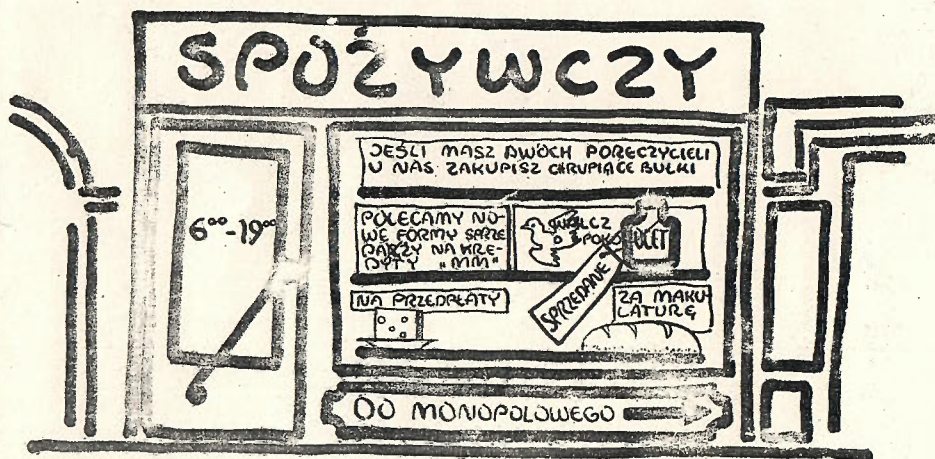 SPOŻYWCZY
JEŚLI MASZ DWÓCH PORĘCZYCIELI
U NAS ZAKUPISZ CHRUPIĄCE BUŁKI
6⁰⁰-19⁰⁰
POLECAMY NO-
WE FORMY SPRZE
DAŻY NA KRE-
DYTY "MM"
WALCZ
O POKÓ
OCET
SPRZEDANE
NA PRZEDPŁATY
ZA MAKU
LATURĘ
DO MONOPOLOWEGO